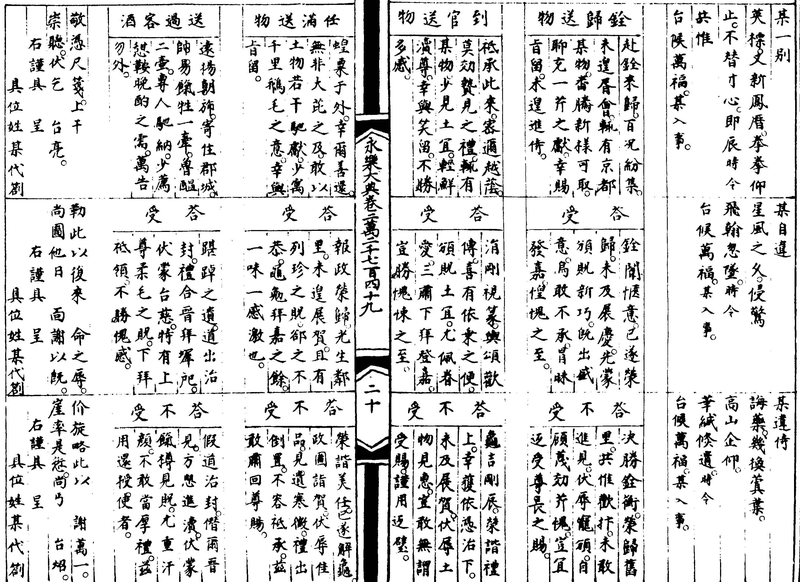 某一别
英標又新鳳曆拳拳仰
止不替寸心即辰時令
共惟
台候萬福某入事
銓歸送物
赴銓来歸百况紛集
未遑胥會輒有京都
某物嘗騰新樣可取
聊充一芹之獻幸賜
旨留未遑進侍
到官送物
祗承此来密邇越蔭
莫効贄見之禮輒有
某物少見土宜輕鮮
瀆尊幸興笑留不勝
多感
某自違
星風之久侵驚
飛翰忽墜時令
台候萬福某入事
答受
銓闈愜意已遂榮
歸未及展慶先蒙
頒貺新巧既出盛
意焉敢不承冒昧
發嘉惶愧之至
答受
涓剛視篆輿頌歡
傳喜有依棗之便
頒貺土宜尤佩眷
愛三肅下拜登嘉
宜勝愧悚之至
某違侍
誨藥幾換蓂葉
高山企仰
華緘倐遺時令
台候萬福某入事
答不受
決勝銓衡榮歸舊
里共惟歡抃未敢
進見伏辱寵頒自
顧蔑効芹愧豈宜
迈受尊長之賜
答不受
龜吉剛辰榮諧禮
上幸獲依憑治下
未及展賀伏辱土
物見惠豈敢無謂
受賜謹用迈璧
永樂大典卷二萬二千七百四十九
二十
任滿送物
煌棗于外幸爾善還
無非大芘之及敢以
土物若干馳獻少寓
千里鵝毛之意幸與
旨留
送過客酒
遠揚朝旆寄住郡城
帥易餼牲一牽魯醞
二壷專人馳納少薦
憇鞍晚酌之需萬告
勿外
敬憑尺箋上干
崇聽伏乞 台亮
右謹具 呈
具位姓某代劄
答受
報政榮歸先生鄰
里未遑展賀且有
列珍之貺郤之不
恭龜勉拜嘉之餘
一味一感激也
答受
踸踔之適道出治
封禮合晉拜墀戺
伏蒙台慈特有上
尊柔毛之貺下拜
祗領不勝愧感
勒此以後来 命之辱
尚圖他日 面謝以既
右謹具 呈
具位姓某代劄
答不受
榮諧美任已遂解龜
政圖詣賀伏辱佳
品見遺寒微禮出
倒置不容祗承兹
敢肅回尊賜
答不受
假道治封僭爾晉
見方愁進瀆伏蒙
餼樽見貺尤重汗
顏不敢當厚禮兹
用還授使者
价旋略此以 謝萬一
崖率是悉尚丐 台炤
右謹具 呈
具位姓某代劄